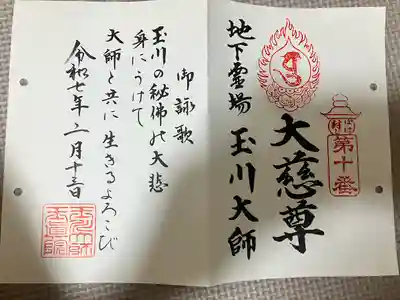 第十番
大慈尊
地下霊場 玉川大師
御詠歌
玉川の秘佛の大悲
身にうけて
大師と共に生きるよろこび
令和七年二月十三日